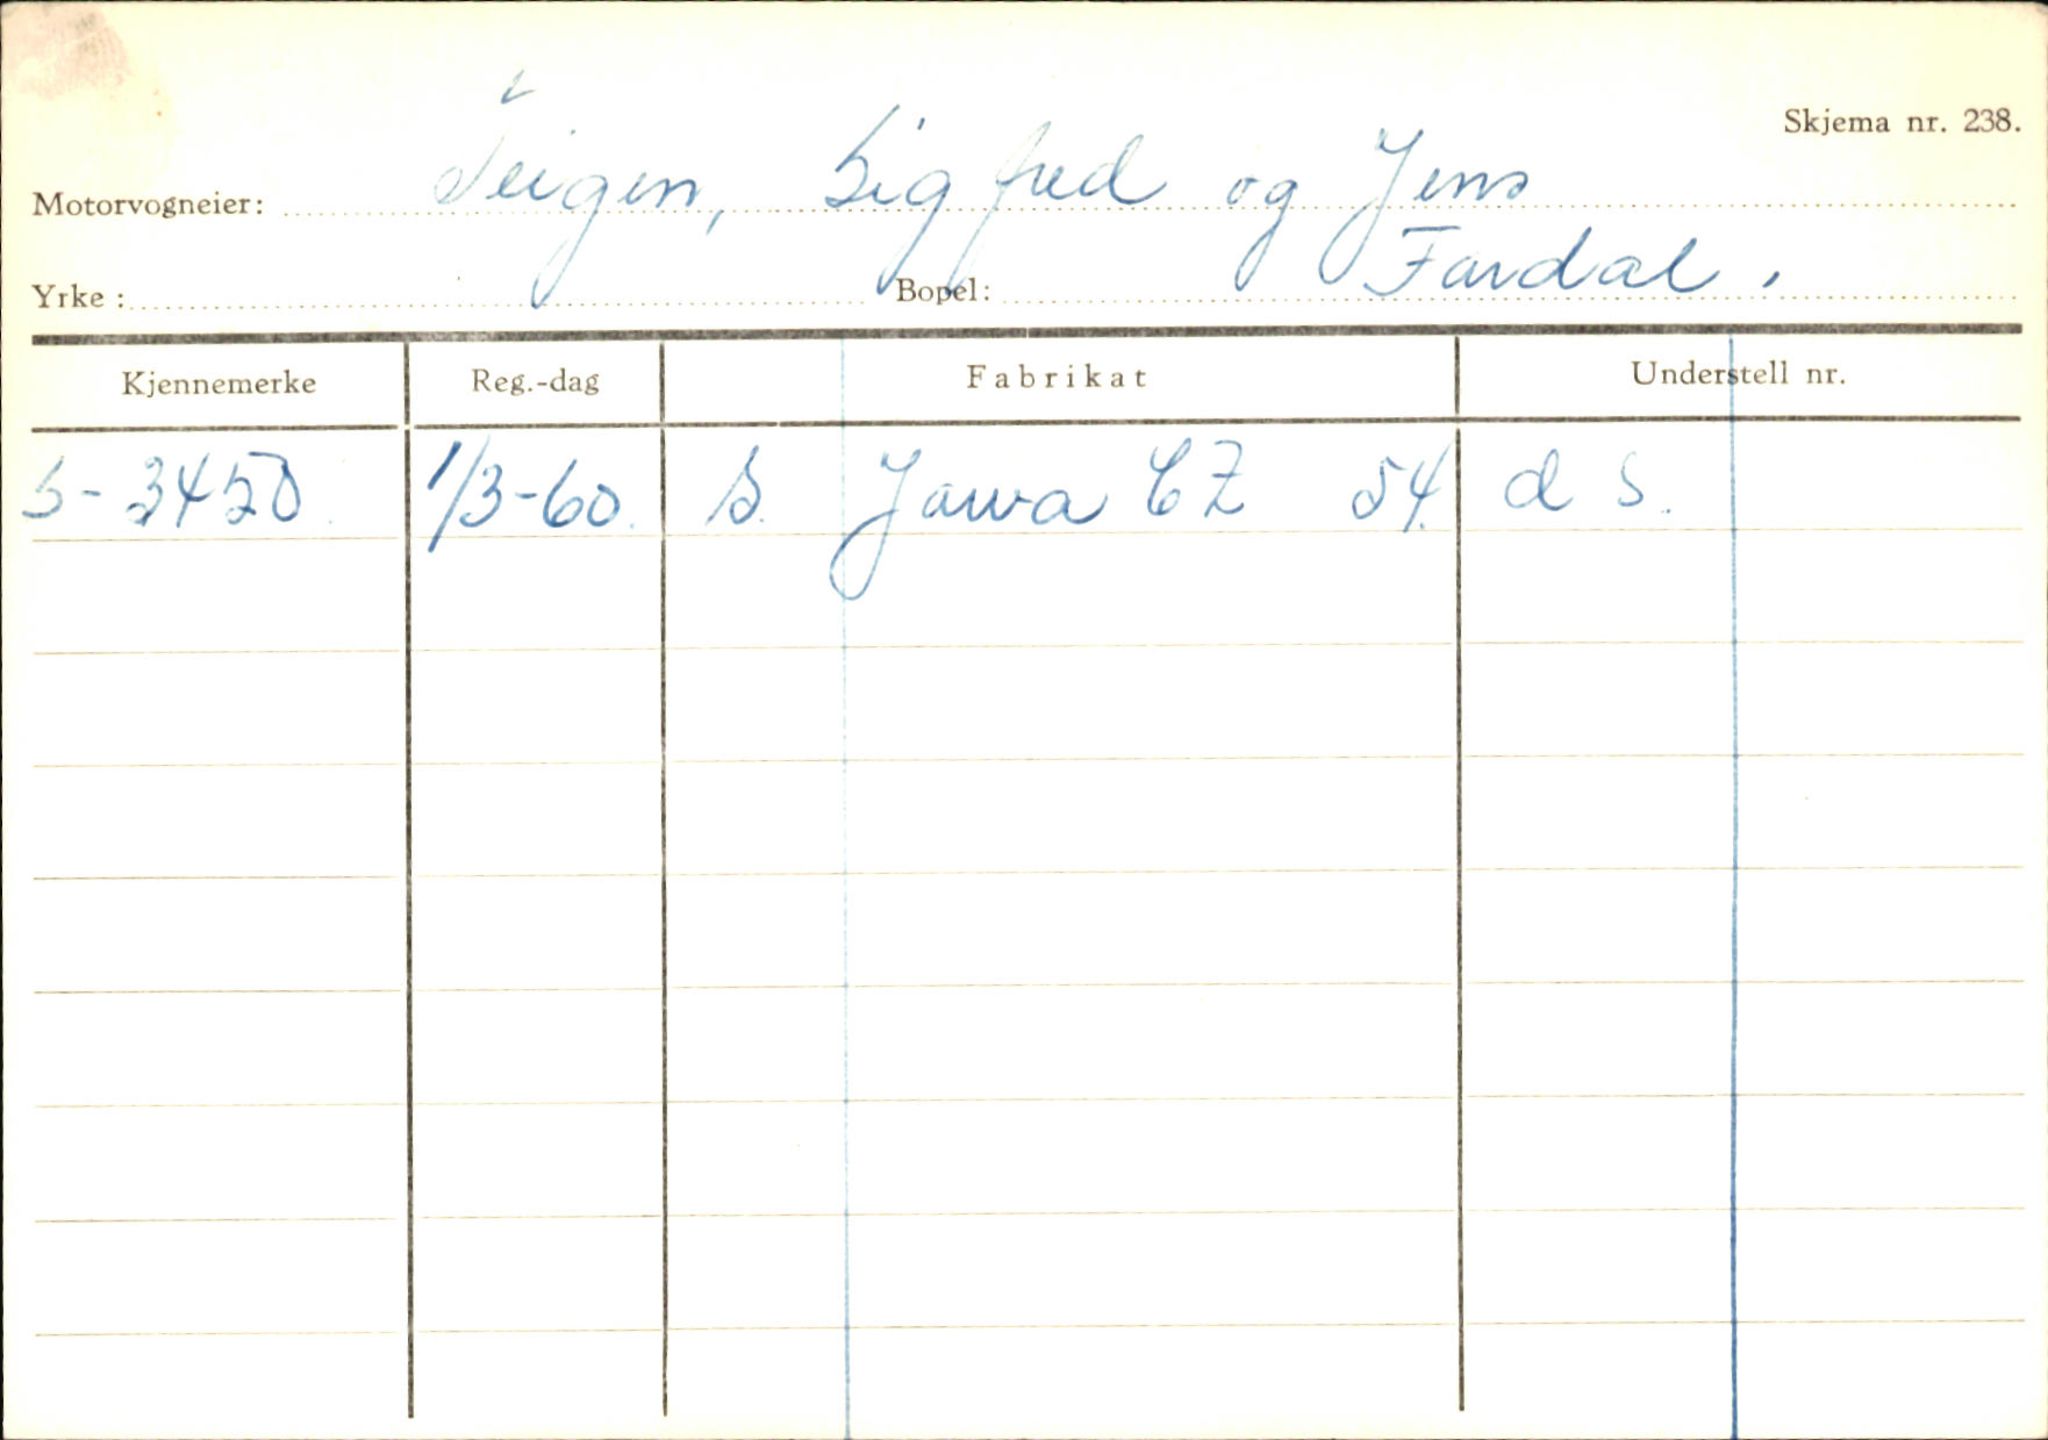 Skjema nr. 238.
Motorvogneier: Teigen, Sigfred og Jens
Yrke : Bopel: Fardal.
Kjennemerke Reg.-dag Fabrikat Understell nr.
S-3450. 1/3-60. S. Jawa CZ 54. d S.